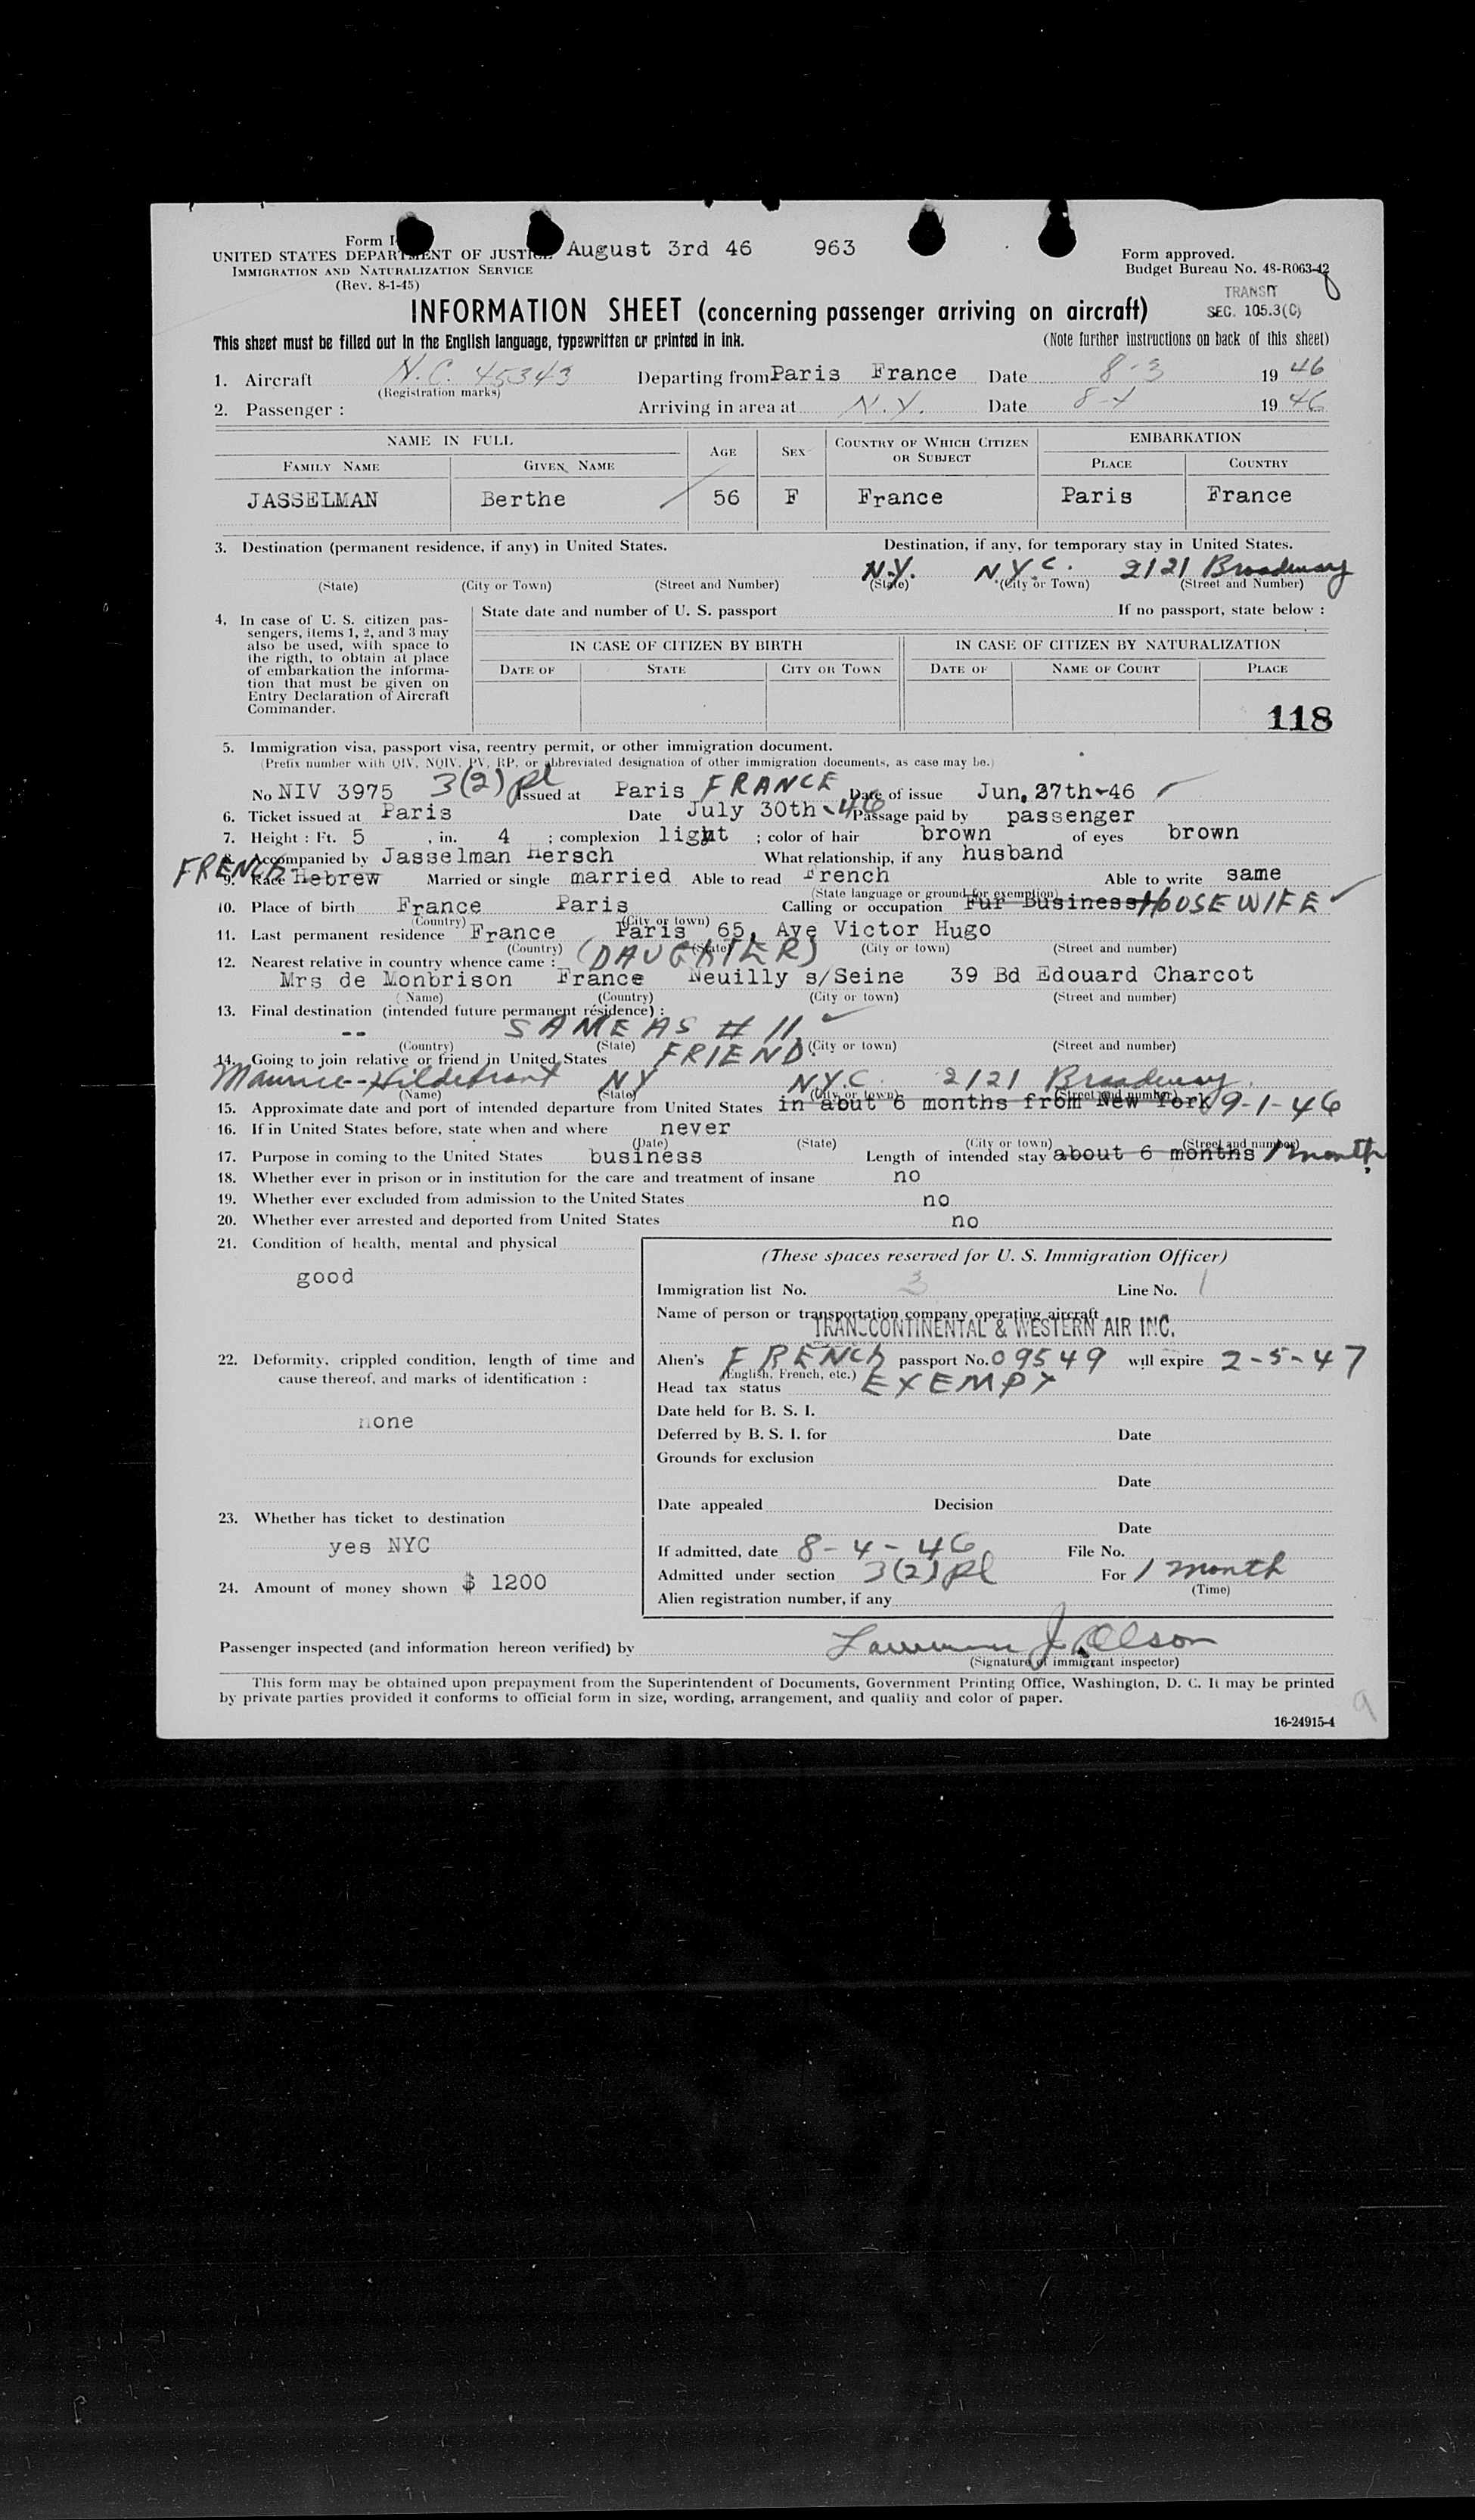 Form I
UNITED STATES DEPARTMENT OF JUSTICE August 3rd 46 963 Form approved.
IMMIGRATION AND NATURALIZATION SERVICE Budget Bureau No. 43-R063-42
(Rev. 8-1-45)
TRANSIT
SEC. 105.3(C)
INFORMATION SHEET (concerning passenger arriving on aircraft)
This sheet must be filled out in the English language, typewritten or printed in ink. (Note further instructions on back of this sheet)
1. Aircraft N.C. 45343 Departing from Paris France Date 8-3 19 46
(Registration marks)
2. Passenger : Arriving in area at N.Y. Date 8-4 19 46
NAME IN FULL AGE SEX COUNTRY OF WHICH CITIZEN OR SUBJECT EMBARKATION
FAMILY NAME GIVEN NAME PLACE COUNTRY
JASSELMAN Berthe 56 F France Paris France
3. Destination (permanent residence, if any) in United States. Destination, if any, for temporary stay in United States.
N.Y. N.Y.C. 2121 Broadway
(State) (City or Town) (Street and Number) (State) (City or Town) (Street and Number)
4. In case of U. S. citizen pas-
sengers, items 1, 2, and 3 may
also be used, with space to
the rigth, to obtain at place
of embarkation the informa-
tion that must be given on
Entry Declaration of Aircraft
Commander.
State date and number of U. S. passport If no passport, state below :
IN CASE OF CITIZEN BY BIRTH IN CASE OF CITIZEN BY NATURALIZATION
DATE OF STATE CITY OR TOWN DATE OF NAME OF COURT PLACE
118
5. Immigration visa, passport visa, reentry permit, or other immigration document.
(Prefix number with QIV, NQIV, PV, RP, or abbreviated designation of other immigration documents, as case may be.)
No NIV 3975 3(2) pl Issued at Paris FRANCE Date of issue Jun, 27th-46
6. Ticket issued at Paris Date July 30th - 46 Passage paid by passenger
7. Height : Ft. 5 , in. 4 ; complexion light ; color of hair brown of eyes brown
8. Accompanied by Jasselman Hersch What relationship, if any husband
FRENCH
9. Race Hebrew Married or single married Able to read French Able to write same
(State language or ground for exemption)
10. Place of birth France Paris Calling or occupation Fur Business HOUSEWIFE
(Country) (City or town)
11. Last permanent residence France Paris 65, Ave Victor Hugo
(Country) (State) (City or town) (Street and number)
12. Nearest relative in country whence came : (DAUGHTER)
Mrs de Monbrison France Neuilly s/Seine 39 Bd Edouard Charcot
(Name) (Country) (City or town) (Street and number)
13. Final destination (intended future permanent résidence) :
-- SAME AS # 11.
(Country) (State) (City or town) (Street and number)
14. Going to join relative or friend in United States FRIEND.
Maurice Hildebrant NY N.Y.C. 2121 Broadway.
(Name) (State) (City or town) (Street and number)
15. Approximate date and port of intended departure from United States in abut 6 months from New York 9-1-46
16. If in United States before, state when and where never
(Date) (State) (City or town) (Street and number)
17. Purpose in coming to the United States business Length of intended stay about 6 months 1 month
18. Whether ever in prison or in institution for the care and treatment of insane no
19. Whether ever excluded from admission to the United States no
20. Whether ever arrested and deported from United States no
21. Condition of health, mental and physical
good
22. Deformity, crippled condition, length of time and
cause thereof, and marks of identification :
none
23. Whether has ticket to destination
yes NYC
24. Amount of money shown $ 1200
(These spaces reserved for U. S. Immigration Officer)
Immigration list No. 3 Line No. 1
Name of person or transportation company operating aircraft
TRANSCONTINENTAL & WESTERN AIR INC.
Alien's FRENCH passport No. 09549 will expire 2-5-47
(English, French, etc.)
Head tax status EXEMPT
Date held for B. S. I.
Deferred by B. S. I. for Date
Grounds for exclusion
Date
Date appealed Decision
Date
If admitted, date 8-4-46 File No.
Admitted under section 3(2) pl For 1 month
(Time)
Alien registration number, if any
Passenger inspected (and information hereon verified) by Lawrence J. Olson
(Signature of immigrant inspector)
This form may be obtained upon prepayment from the Superintendent of Documents, Government Printing Office, Washington, D. C. It may be printed
by private parties provided it conforms to official form in size, wording, arrangement, and quality and color of paper.
9
16-24915-4